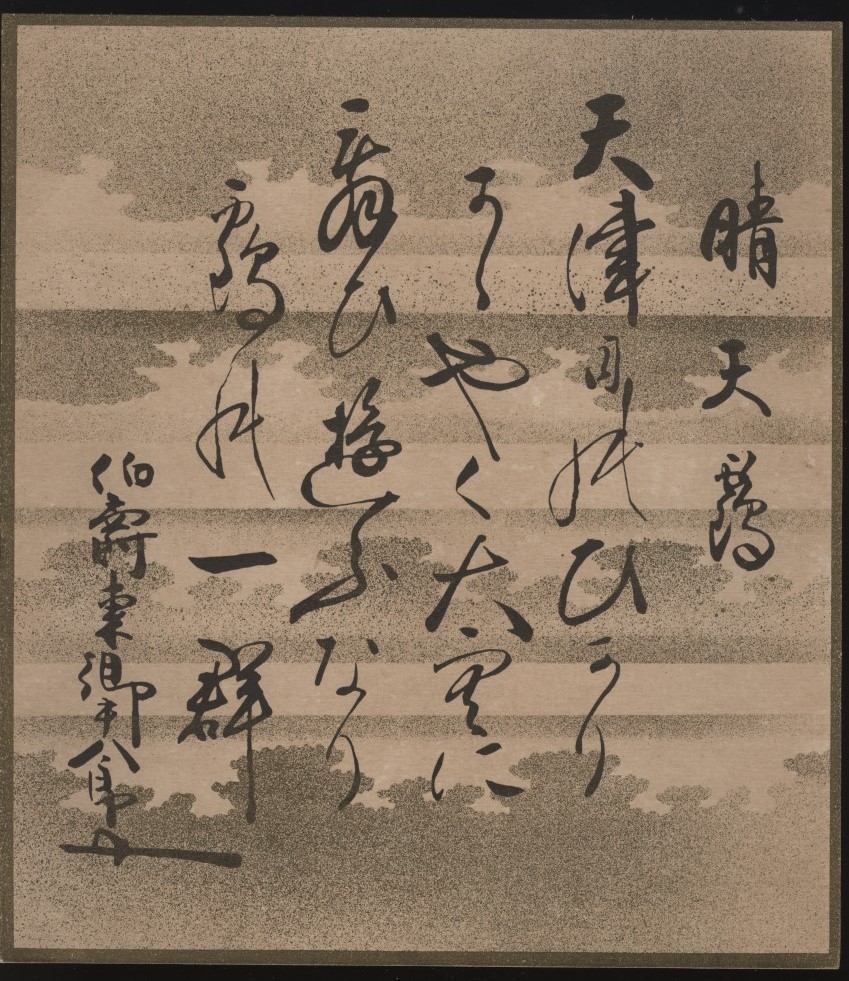 晴天靏
天津日のひかり
かゝやく大空に
舞ひ遊ふなり
靏の一群
伯爵東郷平八郎